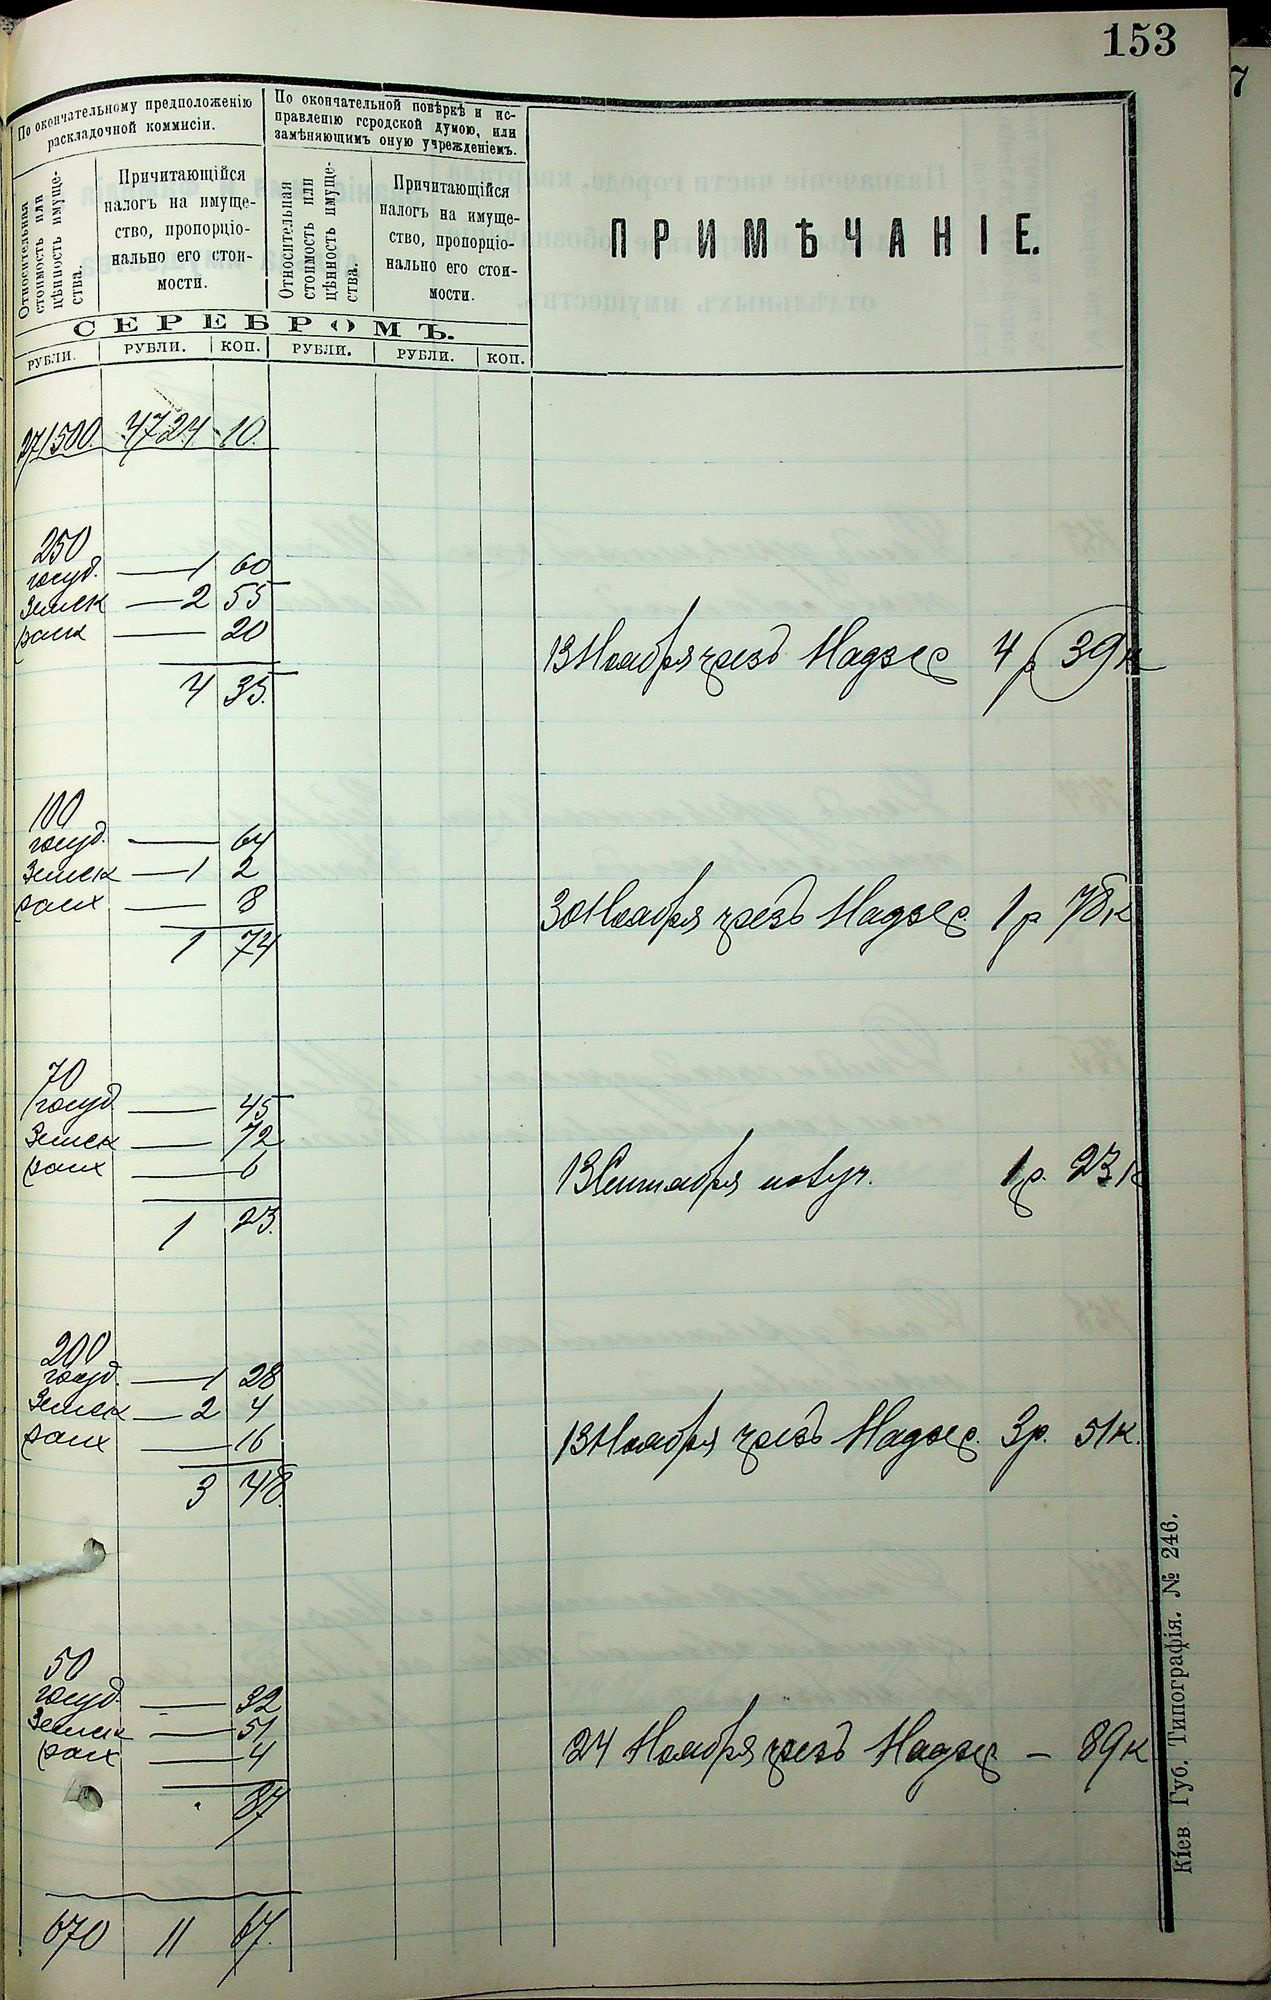 153
По окончательному предположенію
раскладочной коммисіи.
По окончательной повѣркѣ и ис-
правленію городской думою, или
замѣняющимъ оную учрежденіемъ.
Относительная
стоимость или
цѣнность имуще-
ства.
Причитающійся
налогъ на имуще-
ство, пропорціо-
нально его стои-
мости.
Относительная
стоимость или
цѣнность имуще-
ства.
Причитающійся
налогъ на имуще-
ство, пропорціо-
нально его стои-
мости.
ПРИМѢЧАНІЕ.
СЕРЕБРОМЪ.
РУБЛИ. РУБЛИ. КОП. РУБЛИ. РУБЛИ. КОП.
271500. 4724 10.
250
госуд. — 1 60
Земск — 2 55
— 20
4 35.
13 Ноября чрезъ 4 р 39 к
100
госуд. — 64
Земск — 1 2
— 8
1 74
30 Ноября чрезъ 1 р 78 к
70
госуд — 45
Земск — 72
— 6
1 23.
13 Сентября 1 р. 23 к
200
госуд. — 1 28
Земск — 2 4
— 16
3 48.
13 Ноября чрезъ 3 р. 51 к.
50
госуд. — 32
Земск — 51
— 4
87
24 Ноября чрезъ — 89 к
670 11 67.
Кіев. Губ. Типографія. № 246.